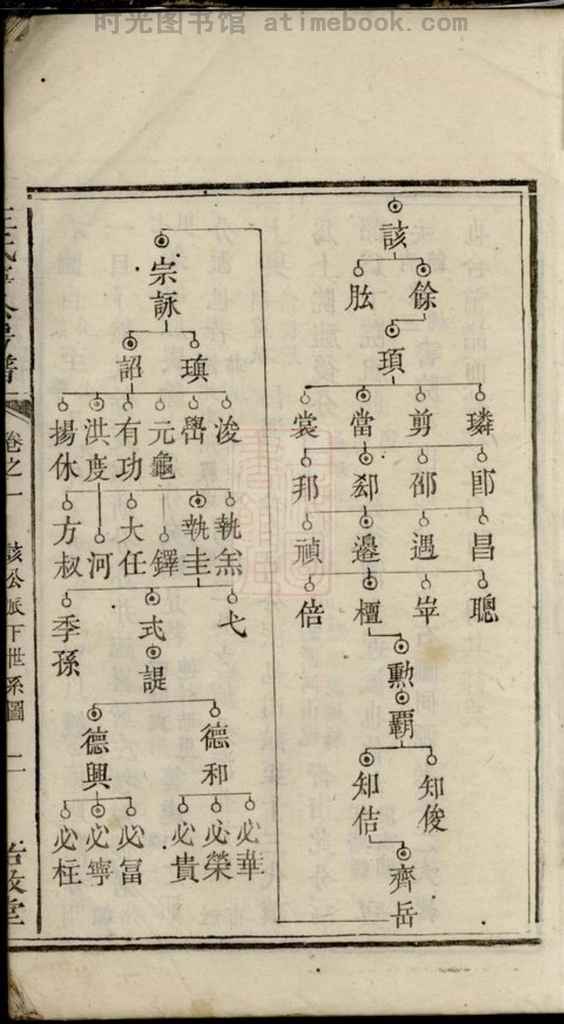 时光图书馆 atimebook.com
該
餘 肱
頊
璘 剪 當 裳
郎 邵 郄 邦
昌 遇 邉 禎
聰 崋 檀 倍
勲
覇
知俊 知佶
齊岳
宗詠
瑱 詔
浚 嚳 元龜 有功 洪度 揚休
執羔 執圭 鐸 大任 河 方叔
弋 式 季孫
諟
德和 德興
必華 必榮 必貴 必冨 必寧 必柱
卷之一
該公派下世系圖
一